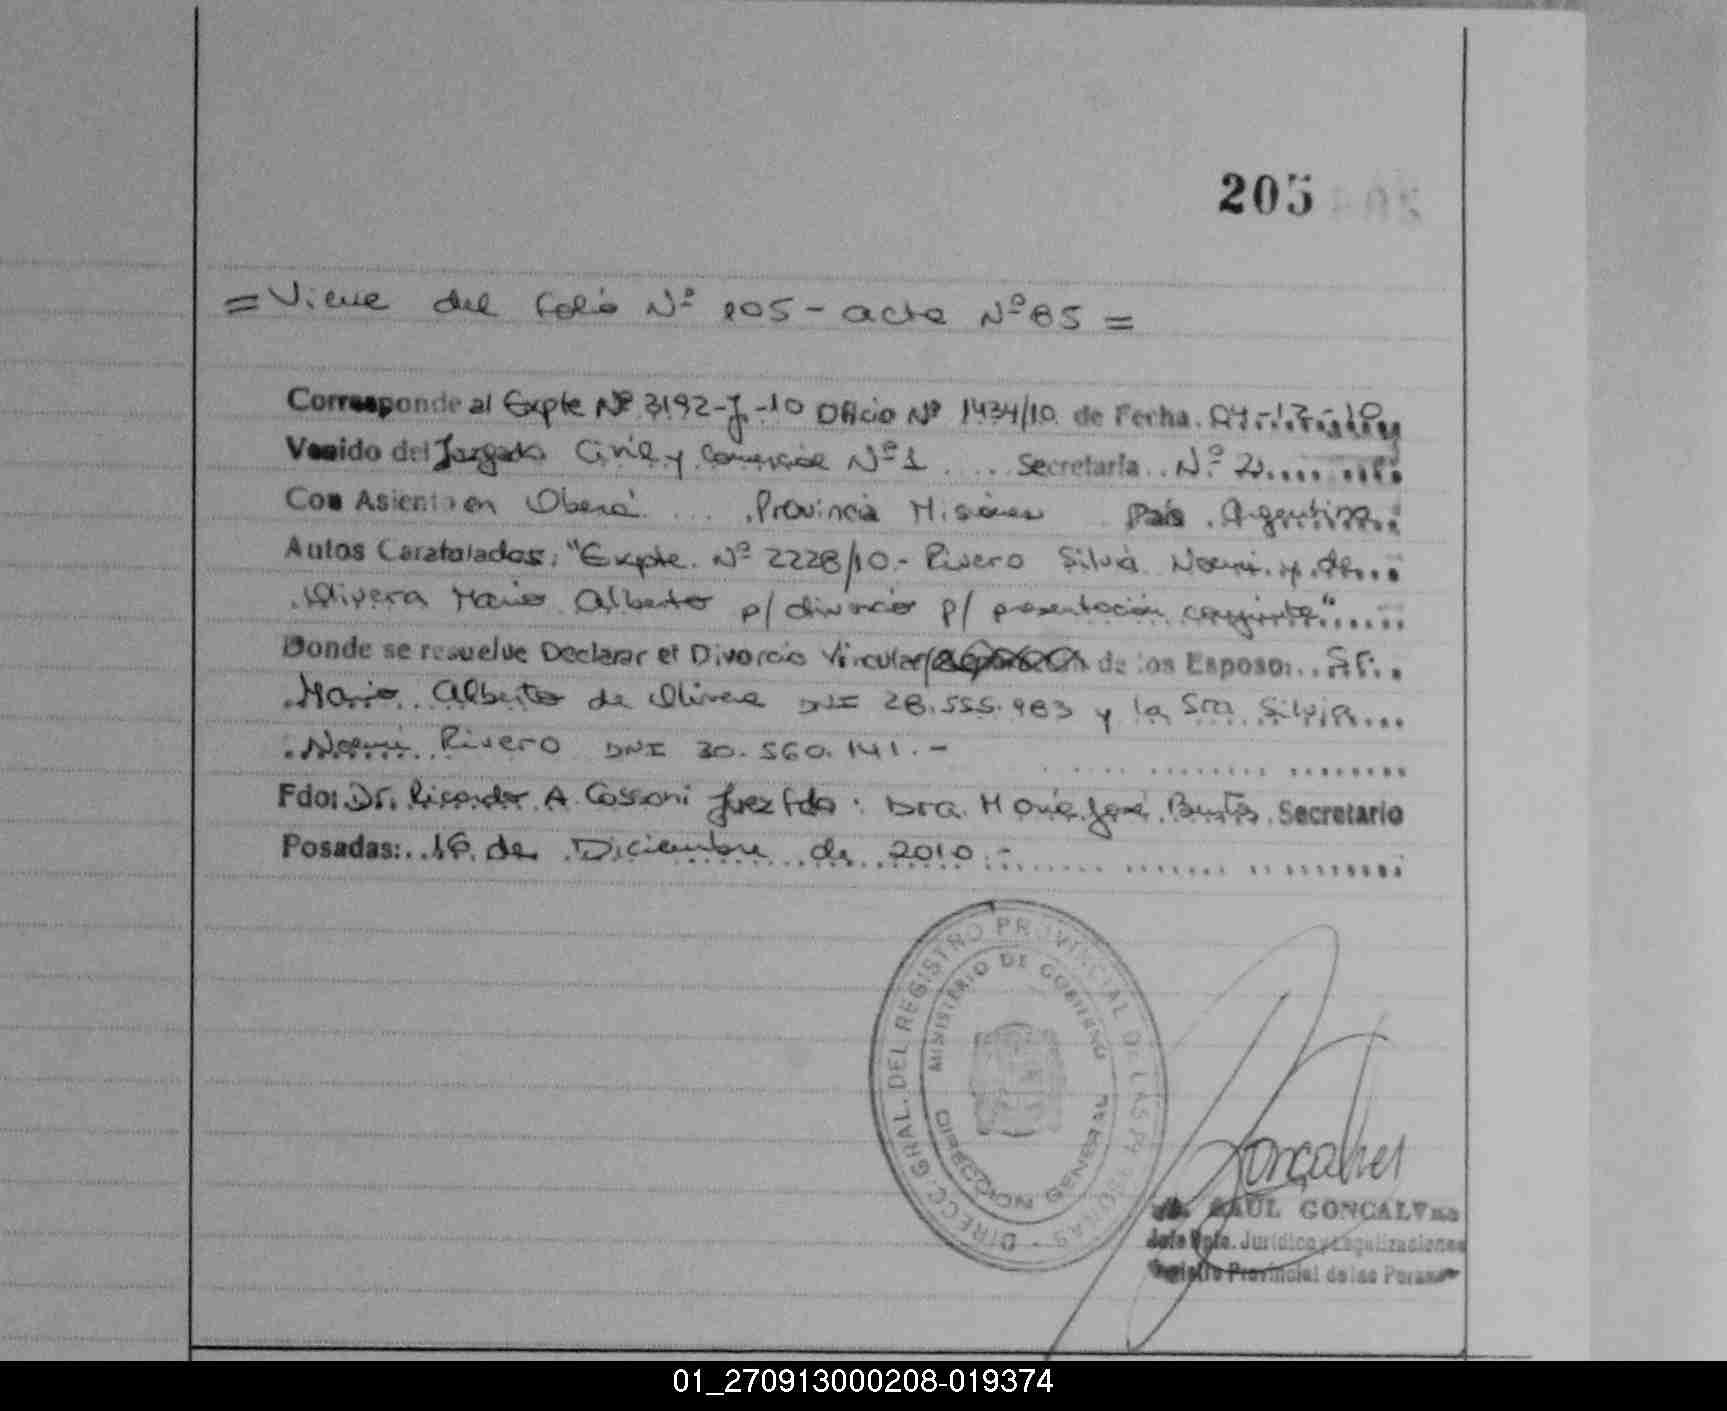 205
= Viene del folio Nº 105 - acta Nº 85 =
Corresponde al Expte Nº 3192-J-10 Oficio Nº 1434/10 de Fecha
Venido del Juzgado Civil y Comercial Nº 1 Secretaria Nº 2
Con Asiento en Oberá Provincia Misiones País Argentina
Autos Caratulados: "Expte. Nº 2228/10.- Rivero Silvia Noemi y de
Olivera Mario Alberto p/ divorcio p/ presentación conjunta"
Donde se resuelve Declarar el Divorcio Vincular/ de los Esposos Sr.
Mario Alberto de Olivera DNI 28.555.983 y la Sra Silvia
Noemi Rivero DNI 30.560.141.-
Fdo: Dr. Ricardo A. Cassoni Juez fdo: Dra. María José Secretario
Posadas: 16 de Diciembre de 2010.-
DIRECC. GRAL. DEL REGISTRO PROVINCIAL DE LAS PERSONAS
MINISTERIO DE GOBIERNO
DIRECCION GENERAL
Gonçalves
SAUL GONCALVES
Jefe Dpto. Jurídico y Legalizaciones
Registro Provincial de las Personas
01_270913000208-019374